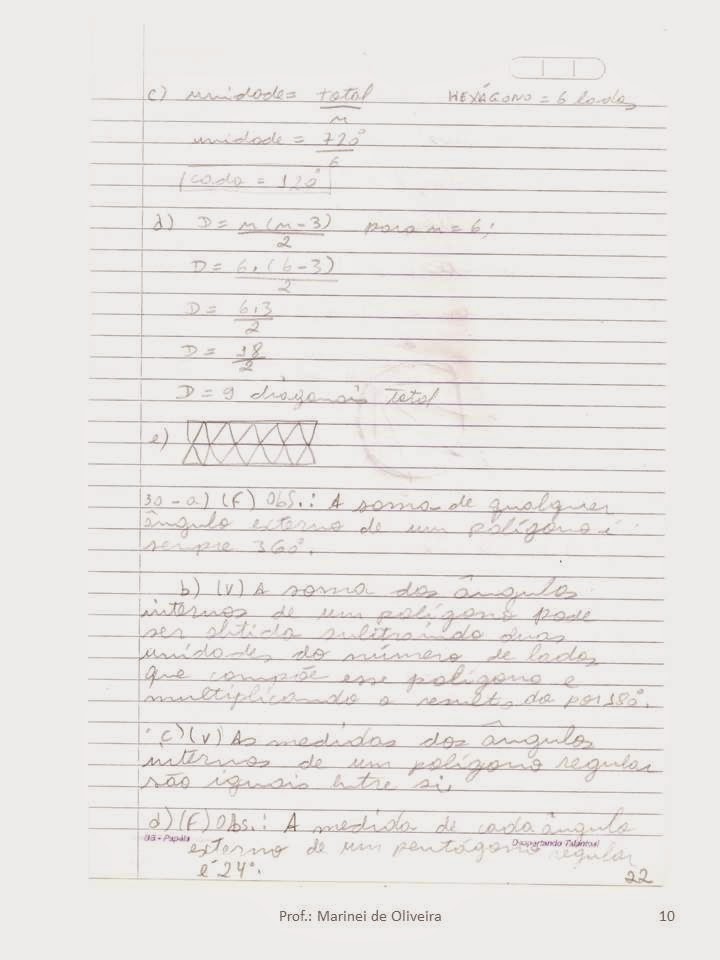 c) unidade = total HEXÁGONO = 6 lados
n
unidade = 720°
6
cada = 120°
d) D = n(n-3) para n = 6;
2
D = 6.(6-3)
2
D = 6.3
2
D = 18
2
D = 9 diagonais Total
e)
30-a) (F) Obs.: A soma de qualquer
ângulo externo de um polígono é
sempre 360°.
b) (V) A soma dos ângulos
internos de um polígono pode
ser obtida subtraindo duas
unidades do número de lados
que compõe esse polígono e
multiplicando o resultado por 180°.
c) (V) As medidas dos ângulos
internos de um polígono regular
são iguais entre si.
d) (F) Obs.: A medida de cada ângulo
BB - Papéis Despertando Talentos!
externo de um pentágono regular
é 24°.
22
Prof.: Marinei de Oliveira 10